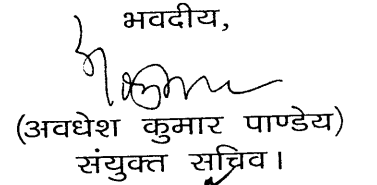 भवदीय,
(अवधेश कुमार पाण्डेय)
संयुक्त सचिव।